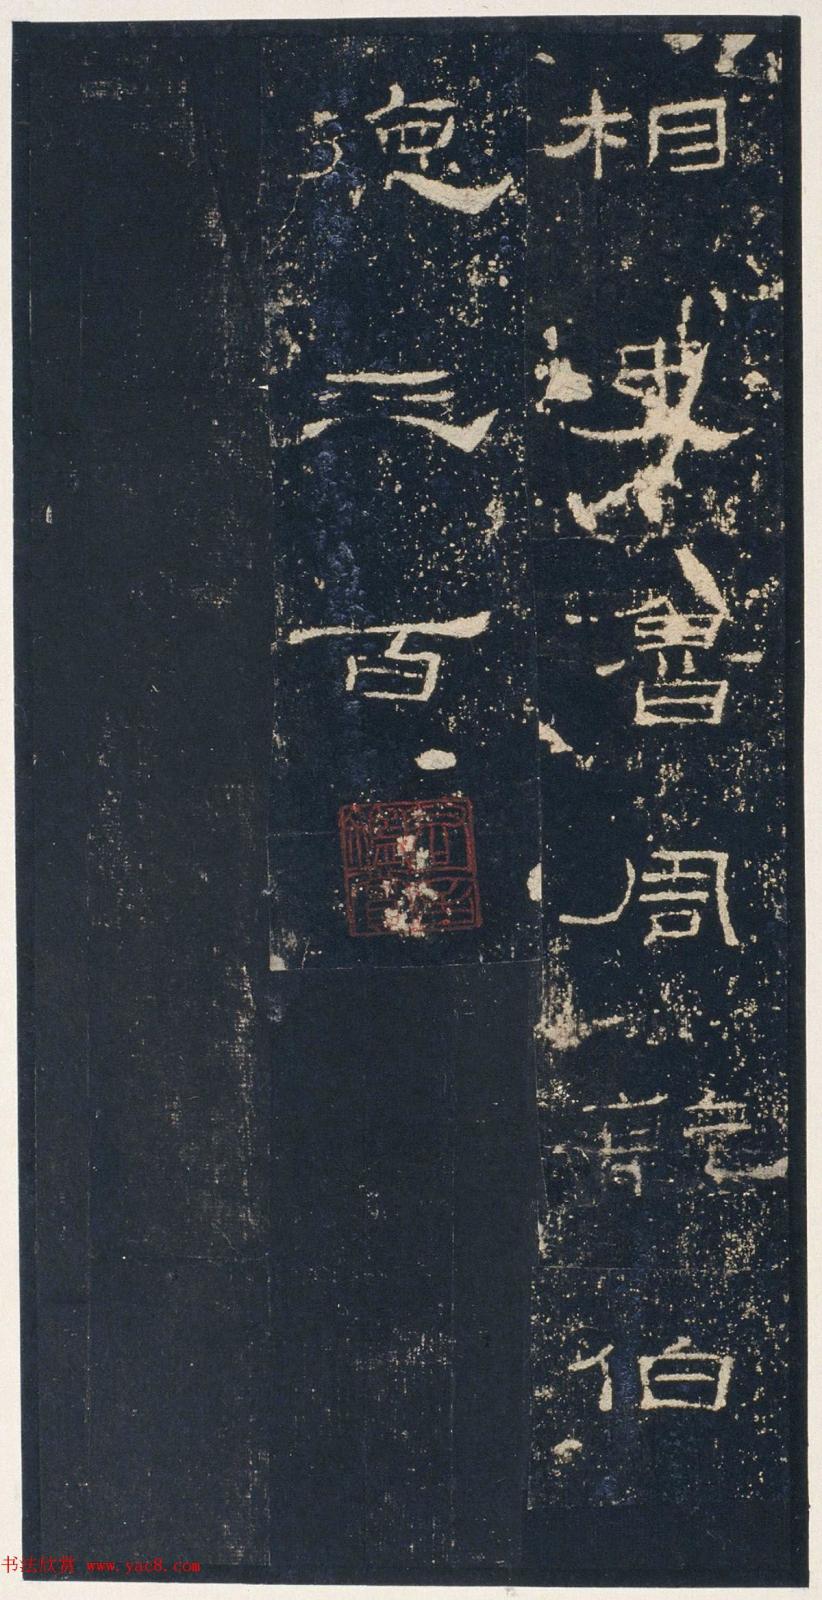 相史魯周乾伯
德三百
书法欣赏 www.yac8.com